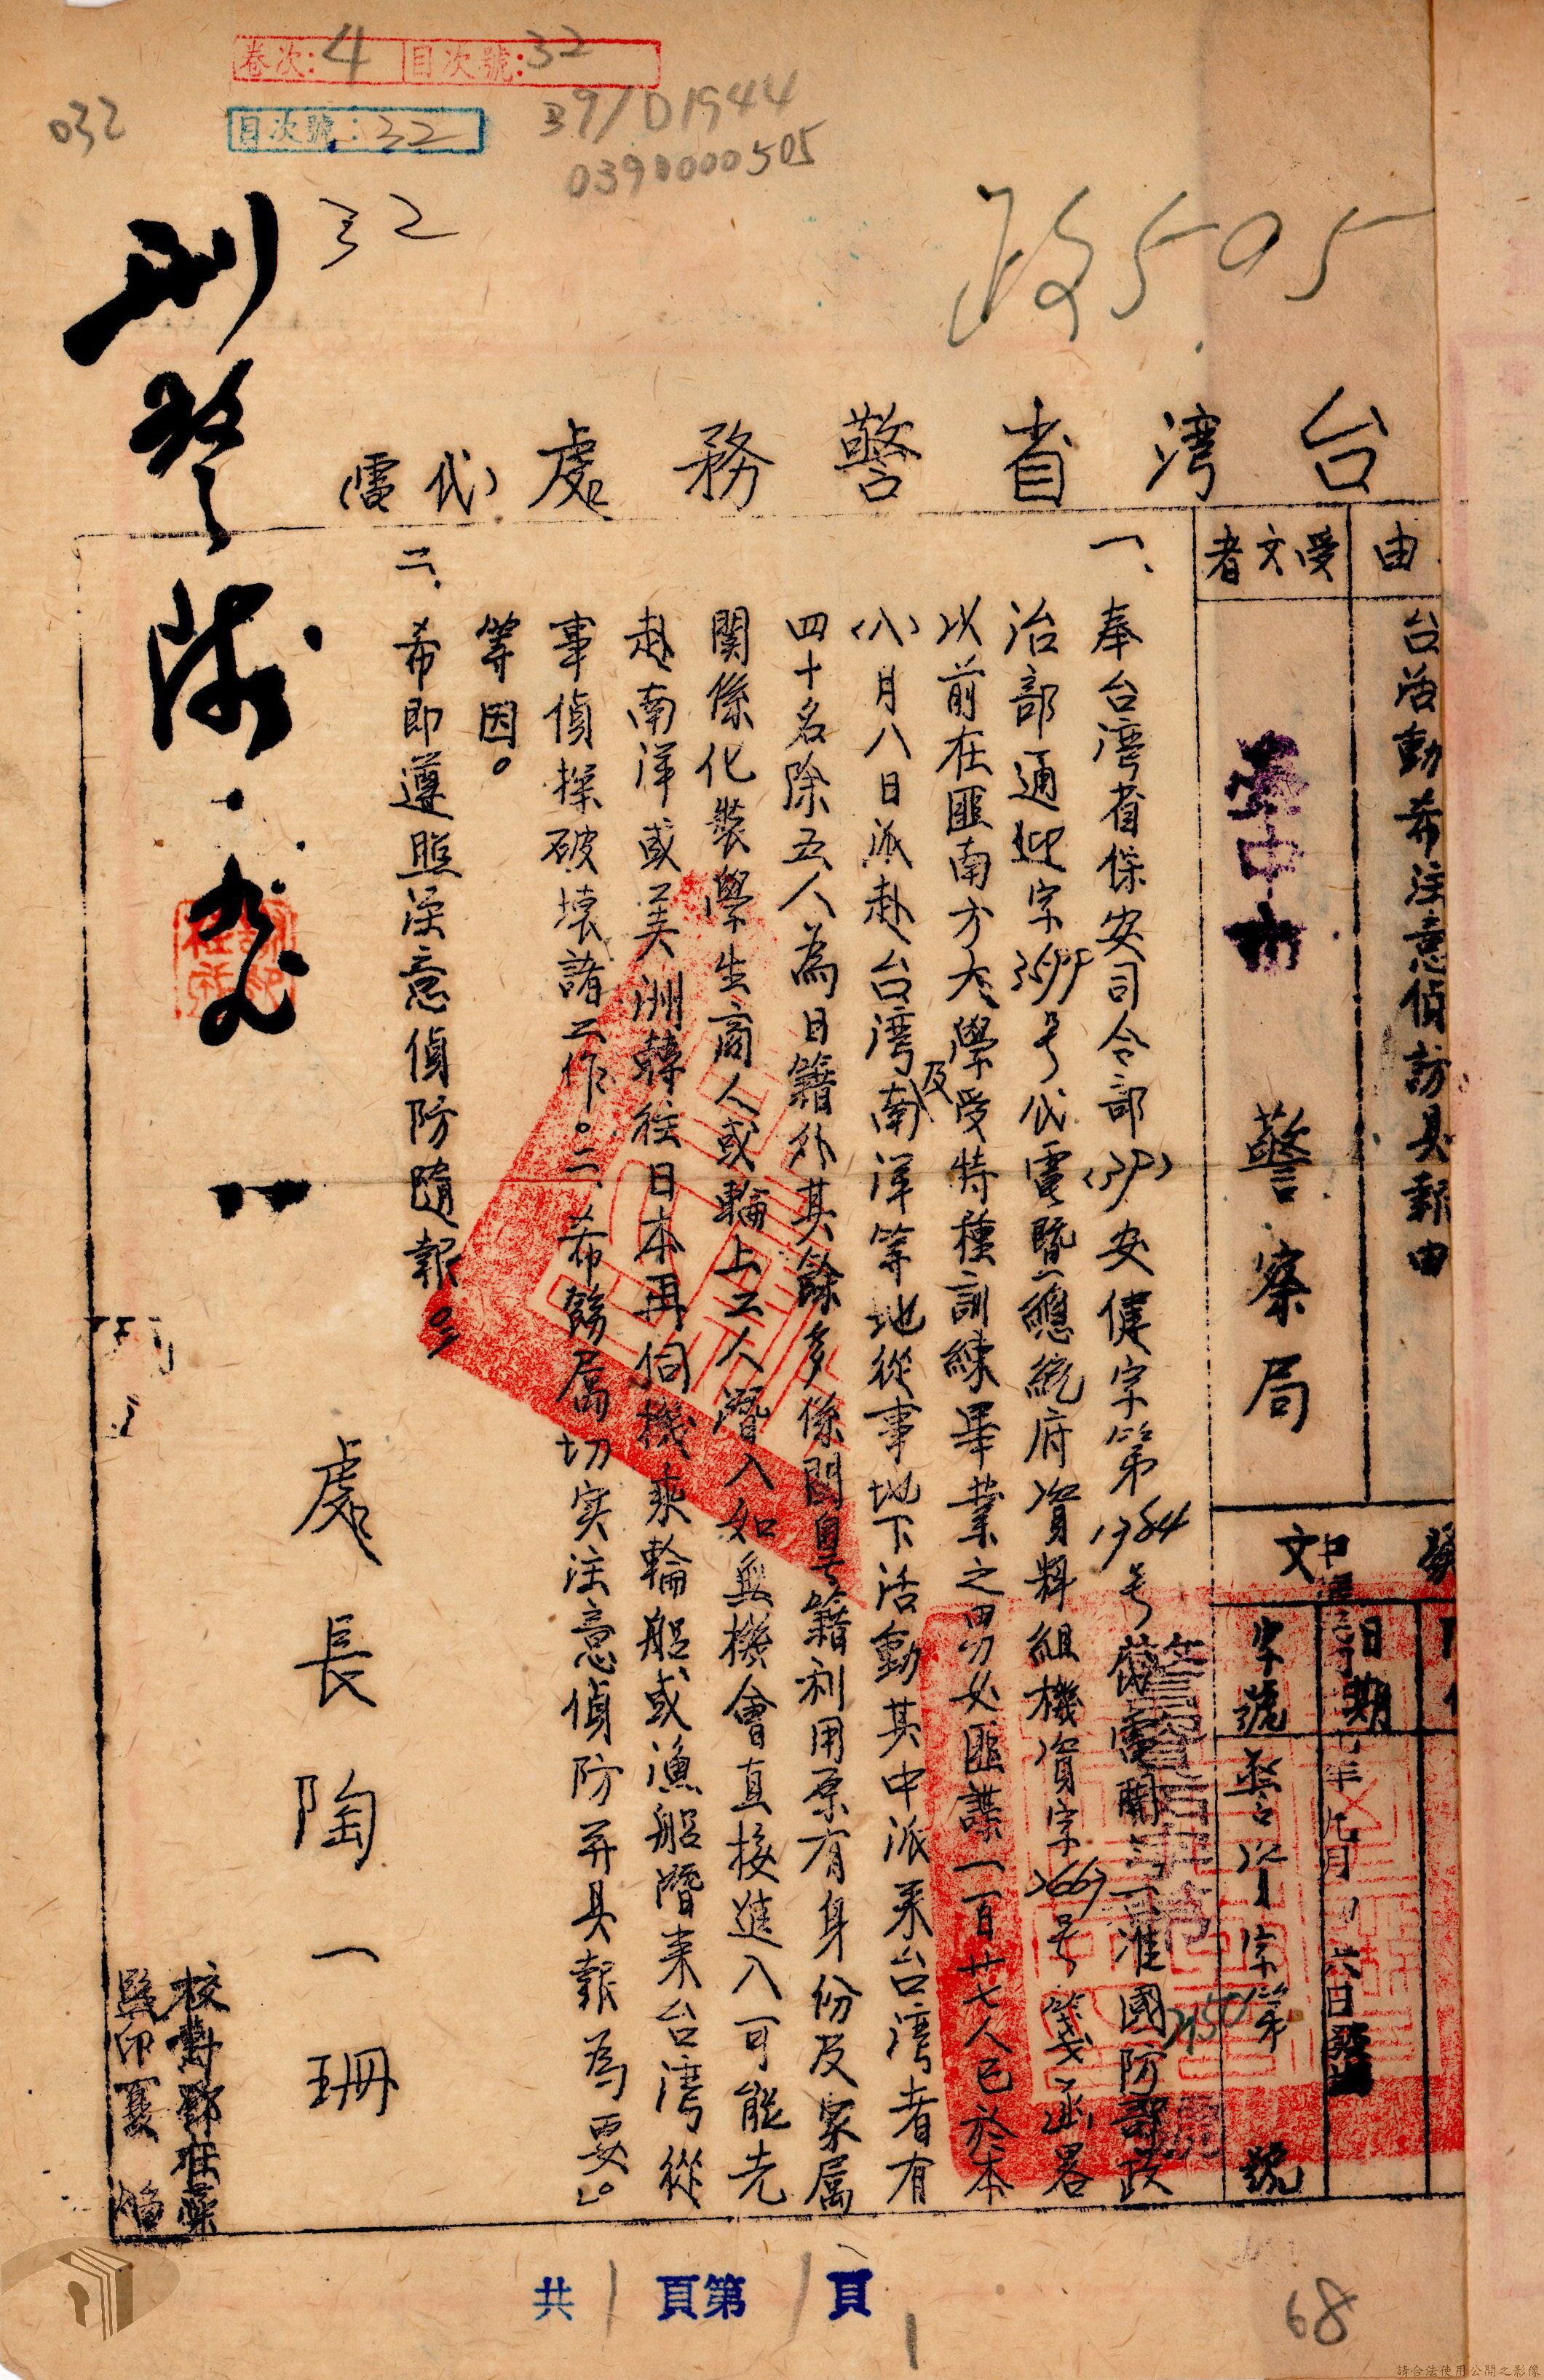 卷次:4 目次號:32
目次號:32
032
39/D1944
0390000505
32
政505
台灣省警務處(代電)
由
台活動希注意偵訪具報由
受文者
臺中市警察局
發文
日期
年九月六日發出
字號
警資字第2150號
一、奉台湾省保安司令部(39)安健字第1384号代電開「一准國防部政
治部通
字3599号代電暨總統府資料組機資字2663号箋函畧
以前在匪南方大學受特種訓練畢業之男女匪諜一百廿七人已於本
(八)月八日派赴台湾及南洋等地從事地下活動其中派來台湾者有
四十名除五人為日籍外其餘多係閩粤籍利用原有身份及家属
関係化裝學生商人或輪上工人潛入如無機會直接進入可能先
赴南洋或美洲轉往日本再伺機乘輪船或漁船潛来台湾從
事偵探破壞諸工作。二、希飭属切实注意偵防并具報為要」。
等因。
二、希即遵照注意偵防隨報。
處長陶一珊
校對鄧
監印夏
共1頁第1頁
68
請合法使用公開之影像